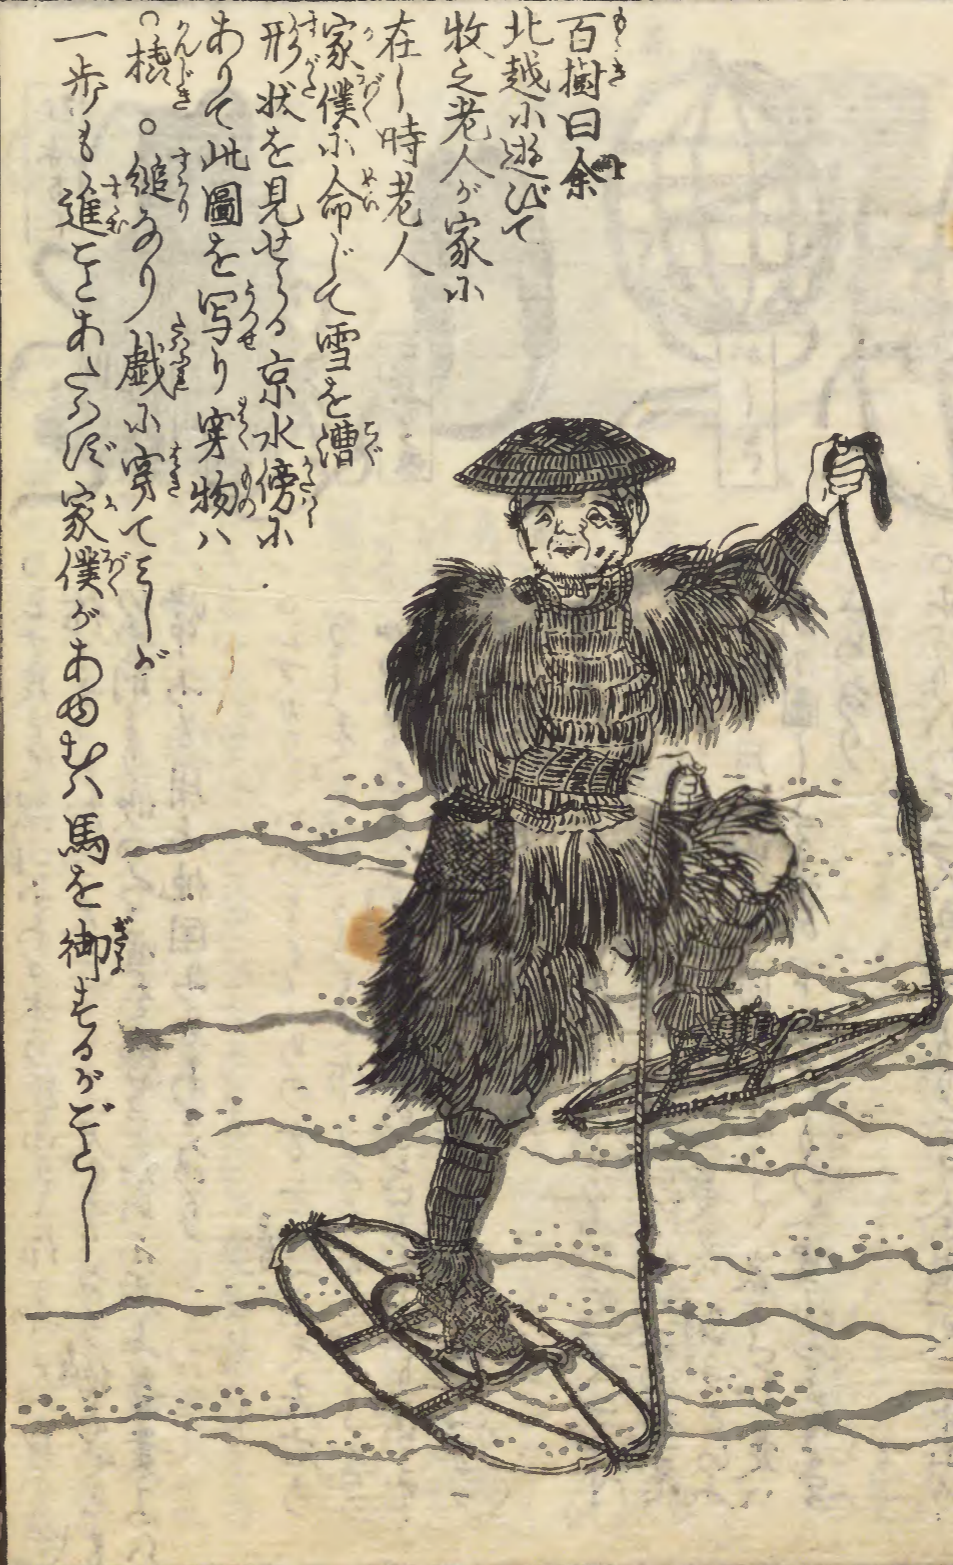 百樹曰余
北越に遊びて
牧之老人が家に
在し時老人
家僕に命じて雪を漕
形状を見せらる京水傍に
ありて此圖を写り穿物ハ
○橇○縋なり戯に穿てミしが
一歩も進ことあたハず家僕があゆむハ馬を御するがごとし